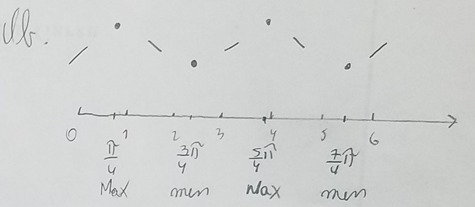 0 1 2 3 4 5 6
π/4 3π/4 5π/4 7/4 π
Max men Max men